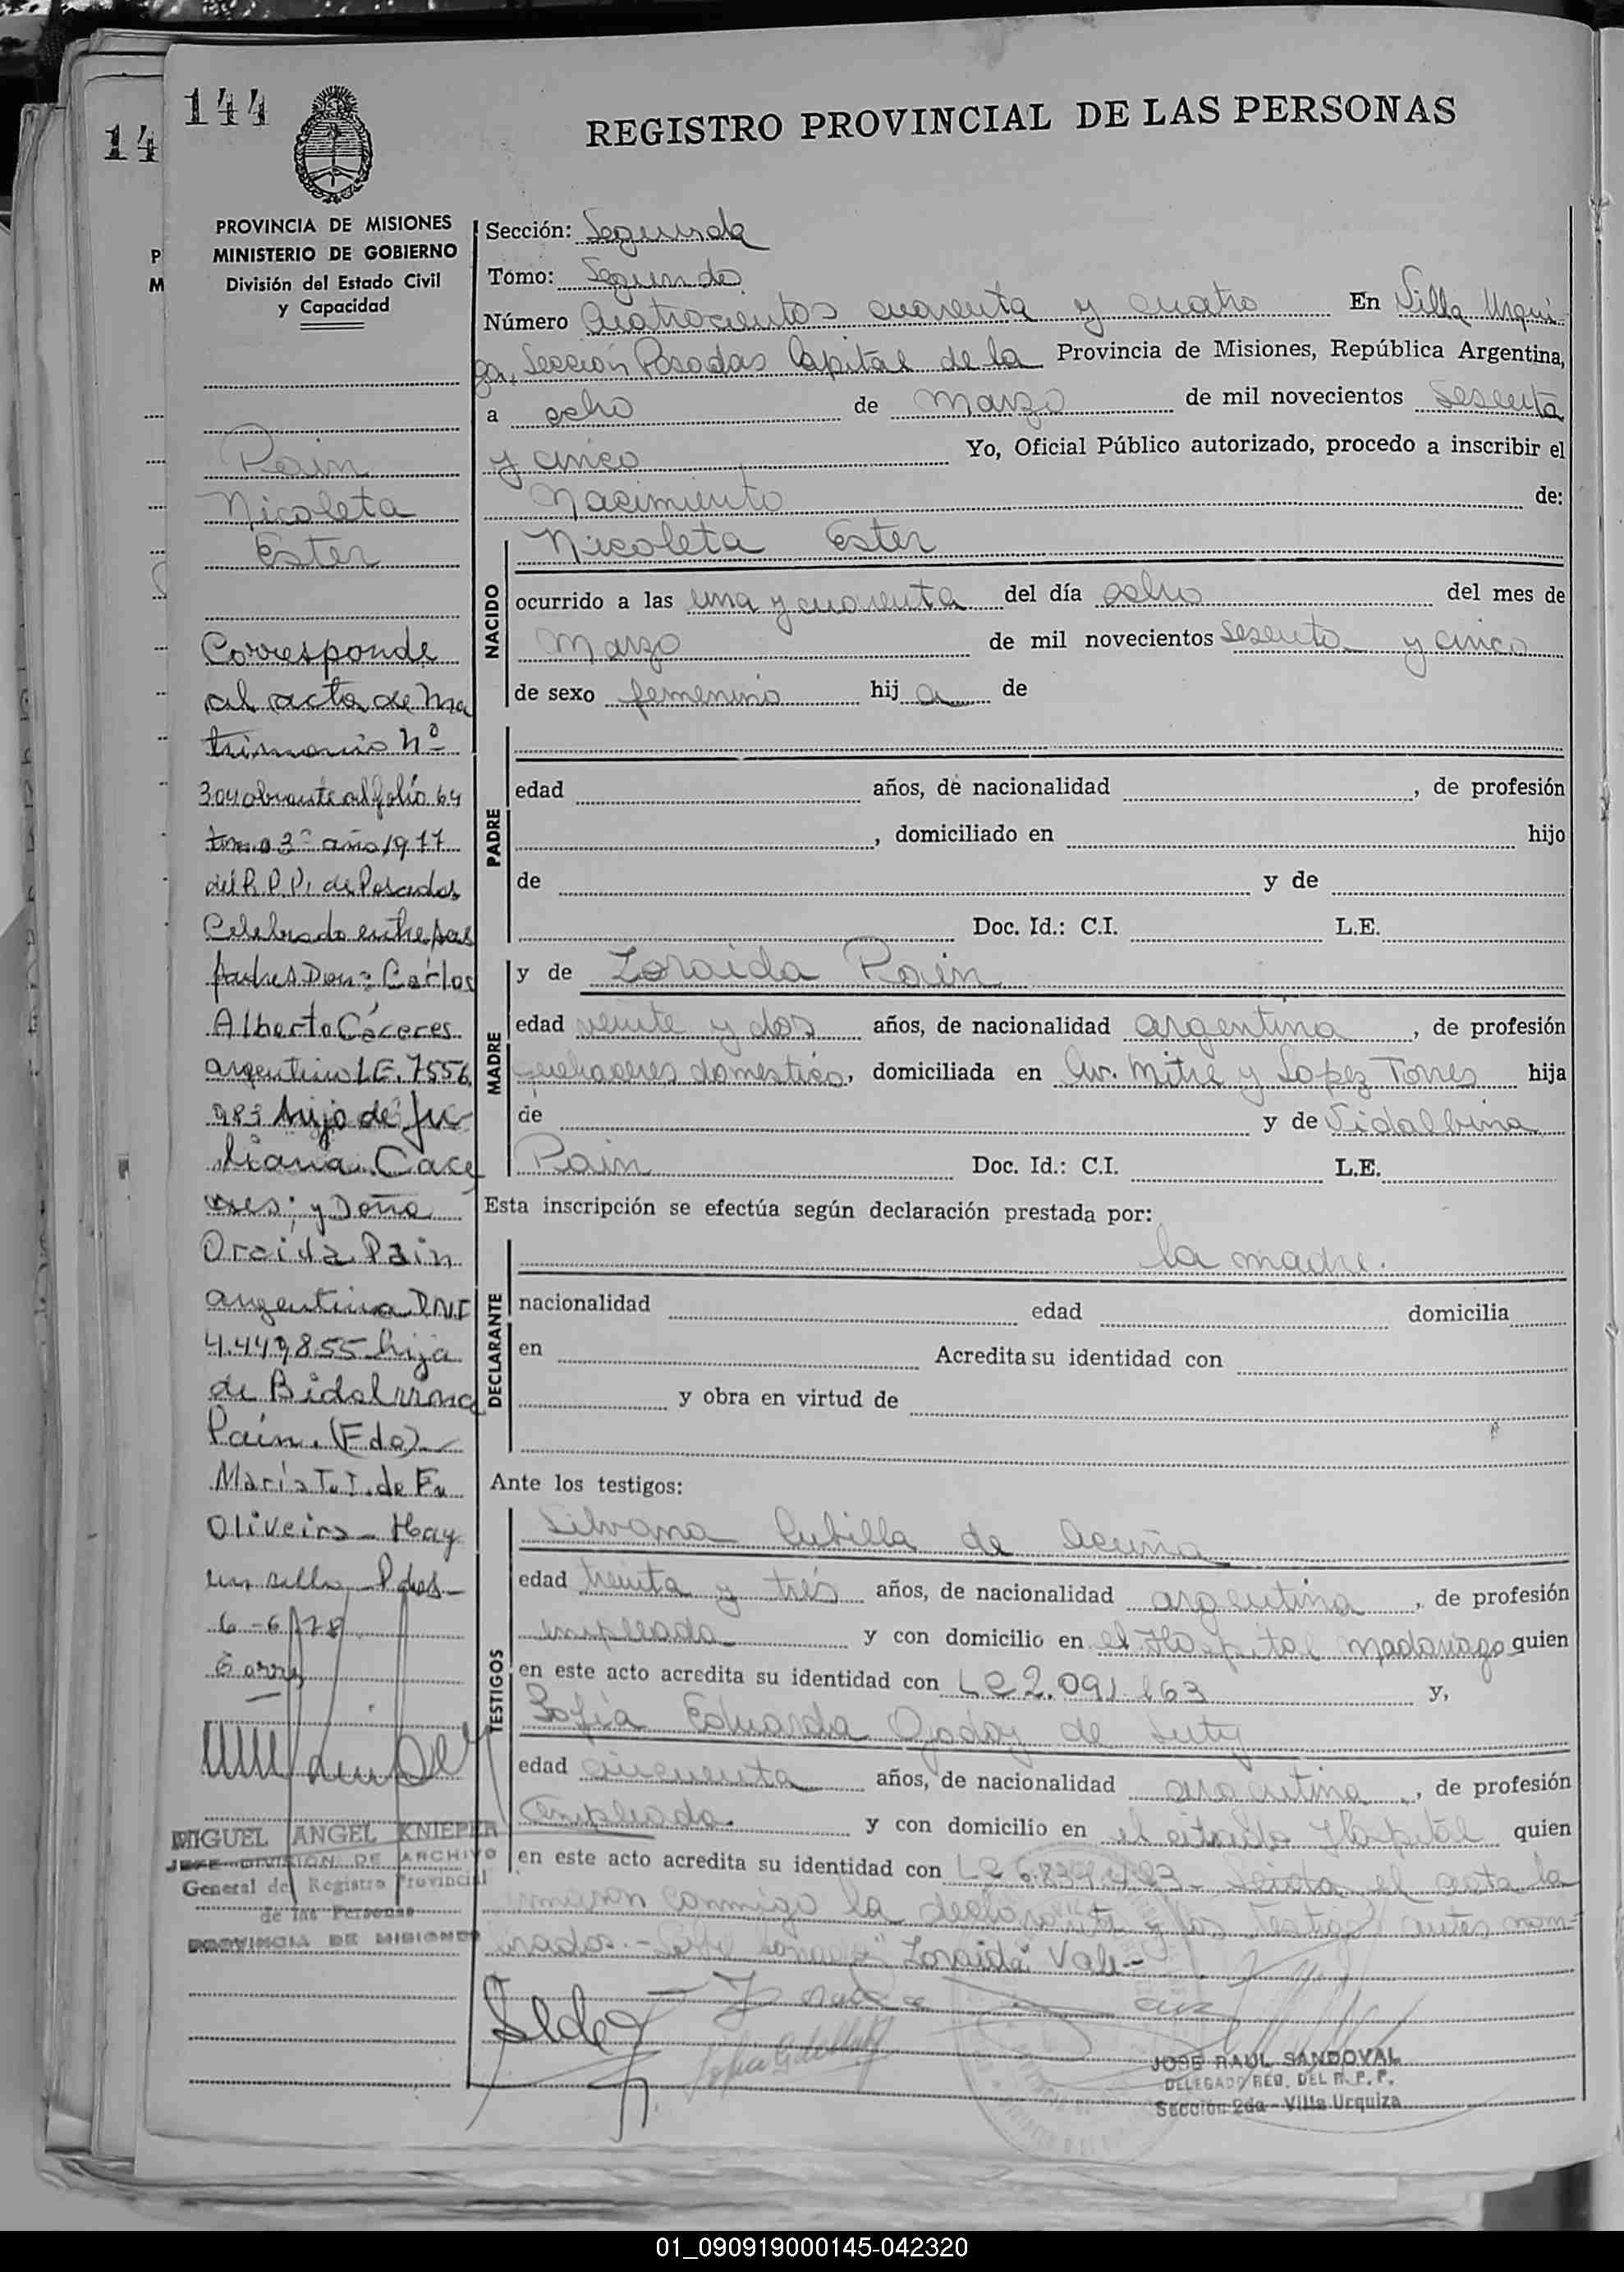 144
14
REGISTRO PROVINCIAL DE LAS PERSONAS
PROVINCIA DE MISIONES
MINISTERIO DE GOBIERNO
División del Estado Civil
y Capacidad
P
M
Pain
Nicoleta
Ester
Corresponde
al acta de Ma
trimonio Nº
304 obrante al folio 64
tomo 3º año 1977
del R.P.P. de Posadas
Celebrado entre sus
padres Don: Carlos
Alberto Cáceres
argentino L.E. 7556
983 hijo de Ju
liana Cace
res; y Doña
Oraida Pain
argentina D.N.I
4.449.855 hija
de Bidalvina
Pain. (Fdo)
María T. T. de Fu
Oliveira - Hay
un sello - Pdas -
6-6-78
MIGUEL ANGEL KNIEPER
JEFE DIVISION DE ARCHIVO
General del Registro Provincial
de las Personas
PROVINCIA DE MISIONES
Sección: Segunda
Tomo: Segundo
Número Cuatrocientos cuarenta y cuatro En Villa Urqui
za, Sección Posadas Capital de la Provincia de Misiones, República Argentina,
a ocho de Marzo de mil novecientos sesenta
y cinco Yo, Oficial Público autorizado, procedo a inscribir el
Nacimiento de:
NACIDO
Nicoleta Ester
ocurrido a las una y cuarenta del día ocho del mes de
Marzo de mil novecientos sesenta y cinco
de sexo femenino hija de
PADRE
edad años, de nacionalidad , de profesión
, domiciliado en hijo
de y de
Doc. Id.: C.I. L.E.
MADRE
y de Zoraida Pain
edad veinte y dos años, de nacionalidad argentina, de profesión
quehaceres domestico, domiciliada en Av. Mitre y Lopez Torres hija
de y de Vidalbina
Pain Doc. Id.: C.I. L.E.
Esta inscripción se efectúa según declaración prestada por:
DECLARANTE
la madre.
nacionalidad edad domicilia
en Acredita su identidad con
y obra en virtud de
Ante los testigos:
TESTIGOS
Silvana Cubilla de Acuña
edad treinta y trés años, de nacionalidad argentina, de profesión
empleada y con domicilio en el Hospital Madariaga quien
en este acto acredita su identidad con LC 2.091.163 y,
Sofia Eduarda Godoy de
edad cincuenta años, de nacionalidad argentina, de profesión
Empleada. y con domicilio en el citado Hospital quien
en este acto acredita su identidad con LC - Leida el acta la
firmaron conmigo la declarante y los testigos antes nom-
brados.- "Zoraida" Vale-
JOSE RAUL SANDOVAL
DELEGADO REG. DEL R. P. P.
Sección 2da - Villa Urquiza
01_090919000145-042320